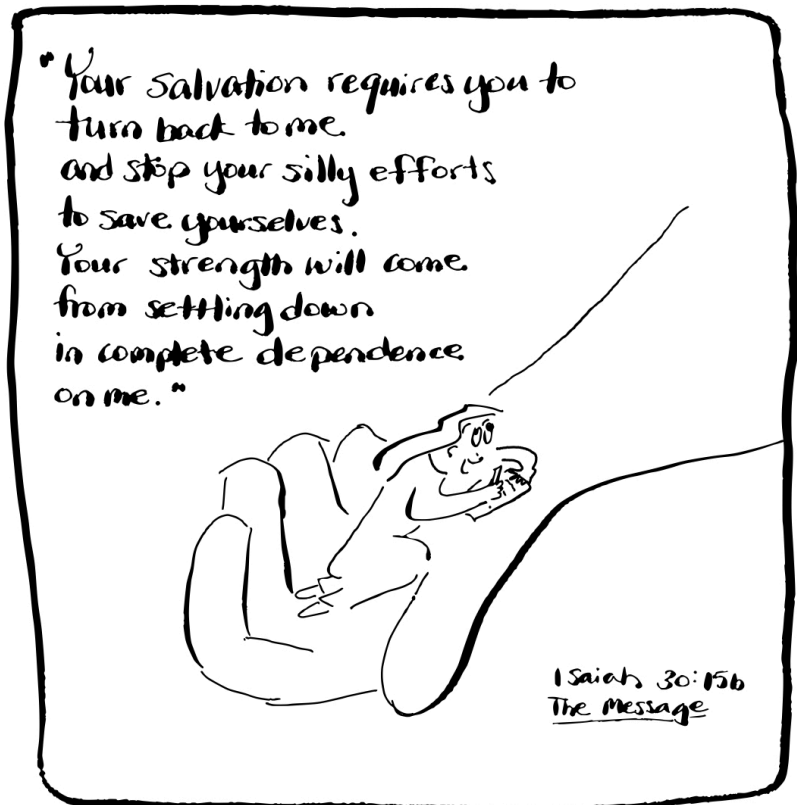 "Your salvation requires you to
turn back to me
and stop your silly efforts
to save yourselves.
Your strength will come
from settling down
in complete dependence
on me."
Isaiah 30:15b
The Message